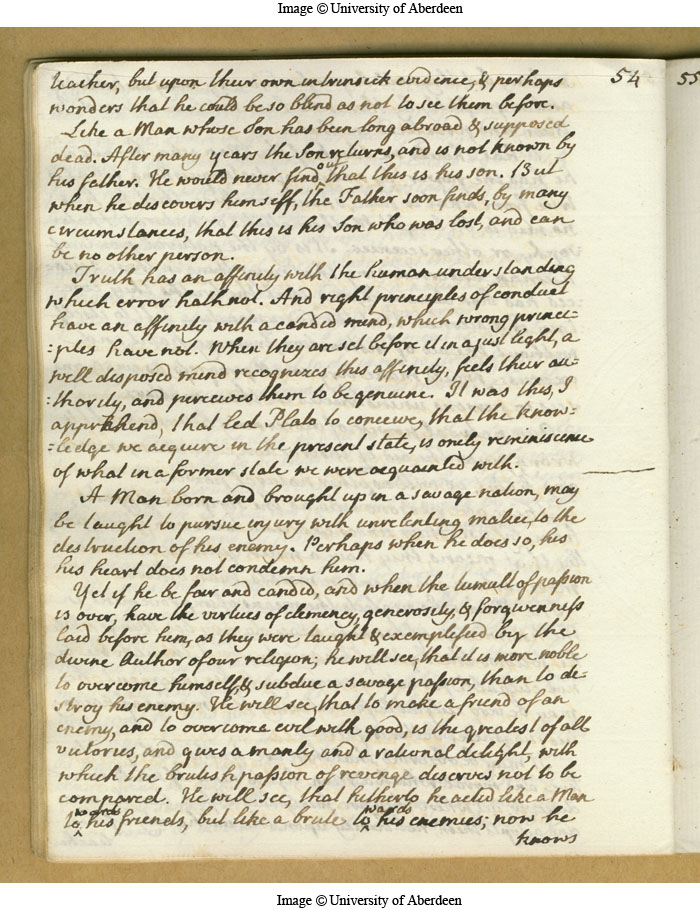 Image © University of Aberdeen
54
55
teacher, but upon their own intrinsick evidence, & perhaps
wonders that he could be so blind as not to see them before.
Like a Man whose Son has been long abroad & supposed
dead. After many years the Son returns, and is not known by
his father. He would never find out that this is his son. But
when he discovers himself, the Father soon finds, by many
circumstances, that this is his Son who was lost, and can
be no other person.
Truth has an affinity with the human understanding
which error hath not. And right principles of conduct
have an affinity with a candid mind, which wrong princi-
:ples have not. When they are set before it in a just light, a
well disposed mind recognizes this affinity, feels their au-
:thority, and perceives them to be genuine. It was this, I
apprehend, that led Plato to conceive, that the know-
:ledge we acquire in the present state, is onely reminiscence
of what in a former state we were acquainted with.
A Man born and brought up in a savage nation, may
be taught to pursue injury with unrelenting malice, to the
destruction of his enemy. Perhaps when he does so, his
his heart does not condemn him.
Yet if he be fair and candid, and when the tumult of passion
is over, have the virtues of clemency, generosity, & forgivenness
laid before him, as they were taught & exemplified by the
divine Author of our religion; he will see, that it is more noble
to overcome himself, & subdue a savage passion, than to de-
stroy his enemy. He will see, that to make a friend of an
enemy, and to overcome evil with good, is the greatest of all
victories, and gives a manly and a rational delight, with
which the brutish passion of revenge deserves not to be
compared. He will see, that hitherto he acted like a Man
towards his friends, but like a brute towards his enemies; now he
knows
Image © University of Aberdeen